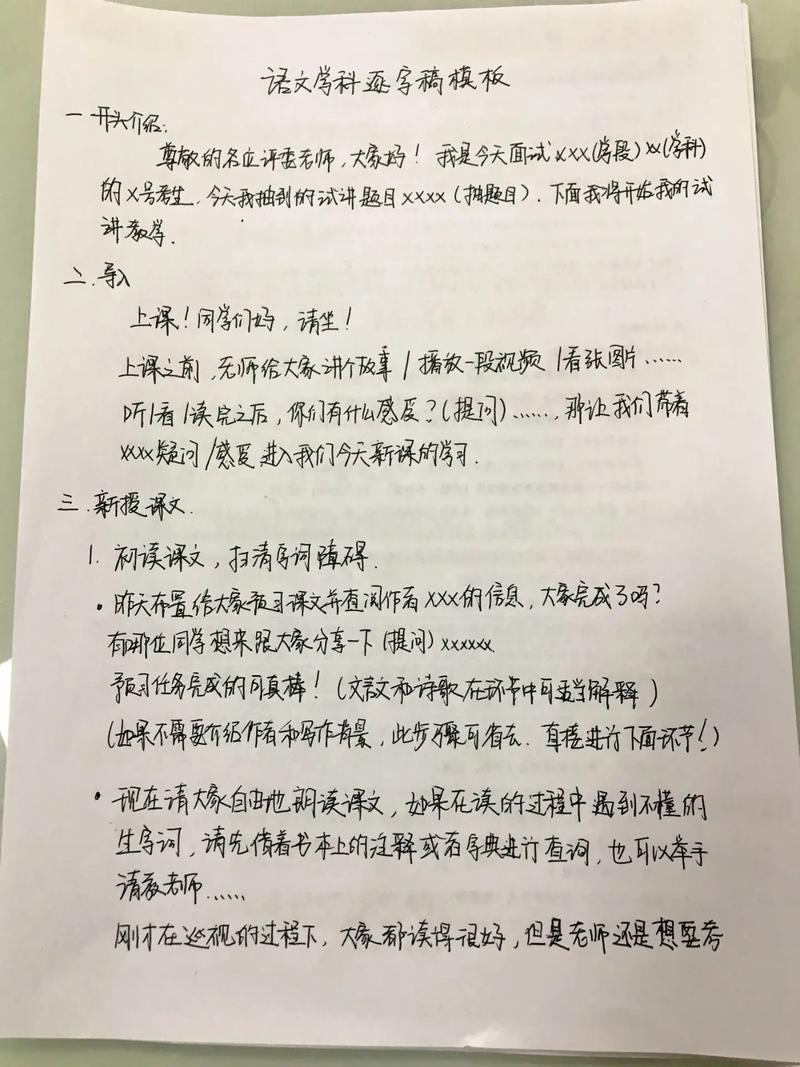 语文学科逐字稿模板
一 开头介绍:
尊敬的各位评委老师,大家好! 我是今天面试xxx(学段)xx(学科)
的x号考生,今天我抽到的试讲题目xxxx(抽题目).下面我将开始我的试
讲教学.
二.导入
上课!同学们好,请坐!
上课之前,老师给大家讲个故事/播放一段视频/看张图片……
听/看/读完之后,你们有什么感受?(提问)……,那让我们带着
xxxx疑问/感受进入我们今天新课的学习.
三.新授课文.
1. 初读课文,扫清字词障碍.
• 昨天布置给大家预习课文并查阅作者xxx的信息,大家完成了吗?
有哪位同学想来跟大家分享一下(提问)xxxxxx.
预习任务完成的可真棒!(文言文和诗歌在环节中可适当解释)
(如果不需要介绍作者和写作背景,此步骤可省去.直接进行下面环节!)
• 现在请大家自由地朗读课文,如果在读的过程中遇到不懂的
生字词,请先借着书本上的注释或者字典进行查询,也可以举手
请教老师……
刚才在巡视的过程下,大家都读得很好,但是老师还是想要考